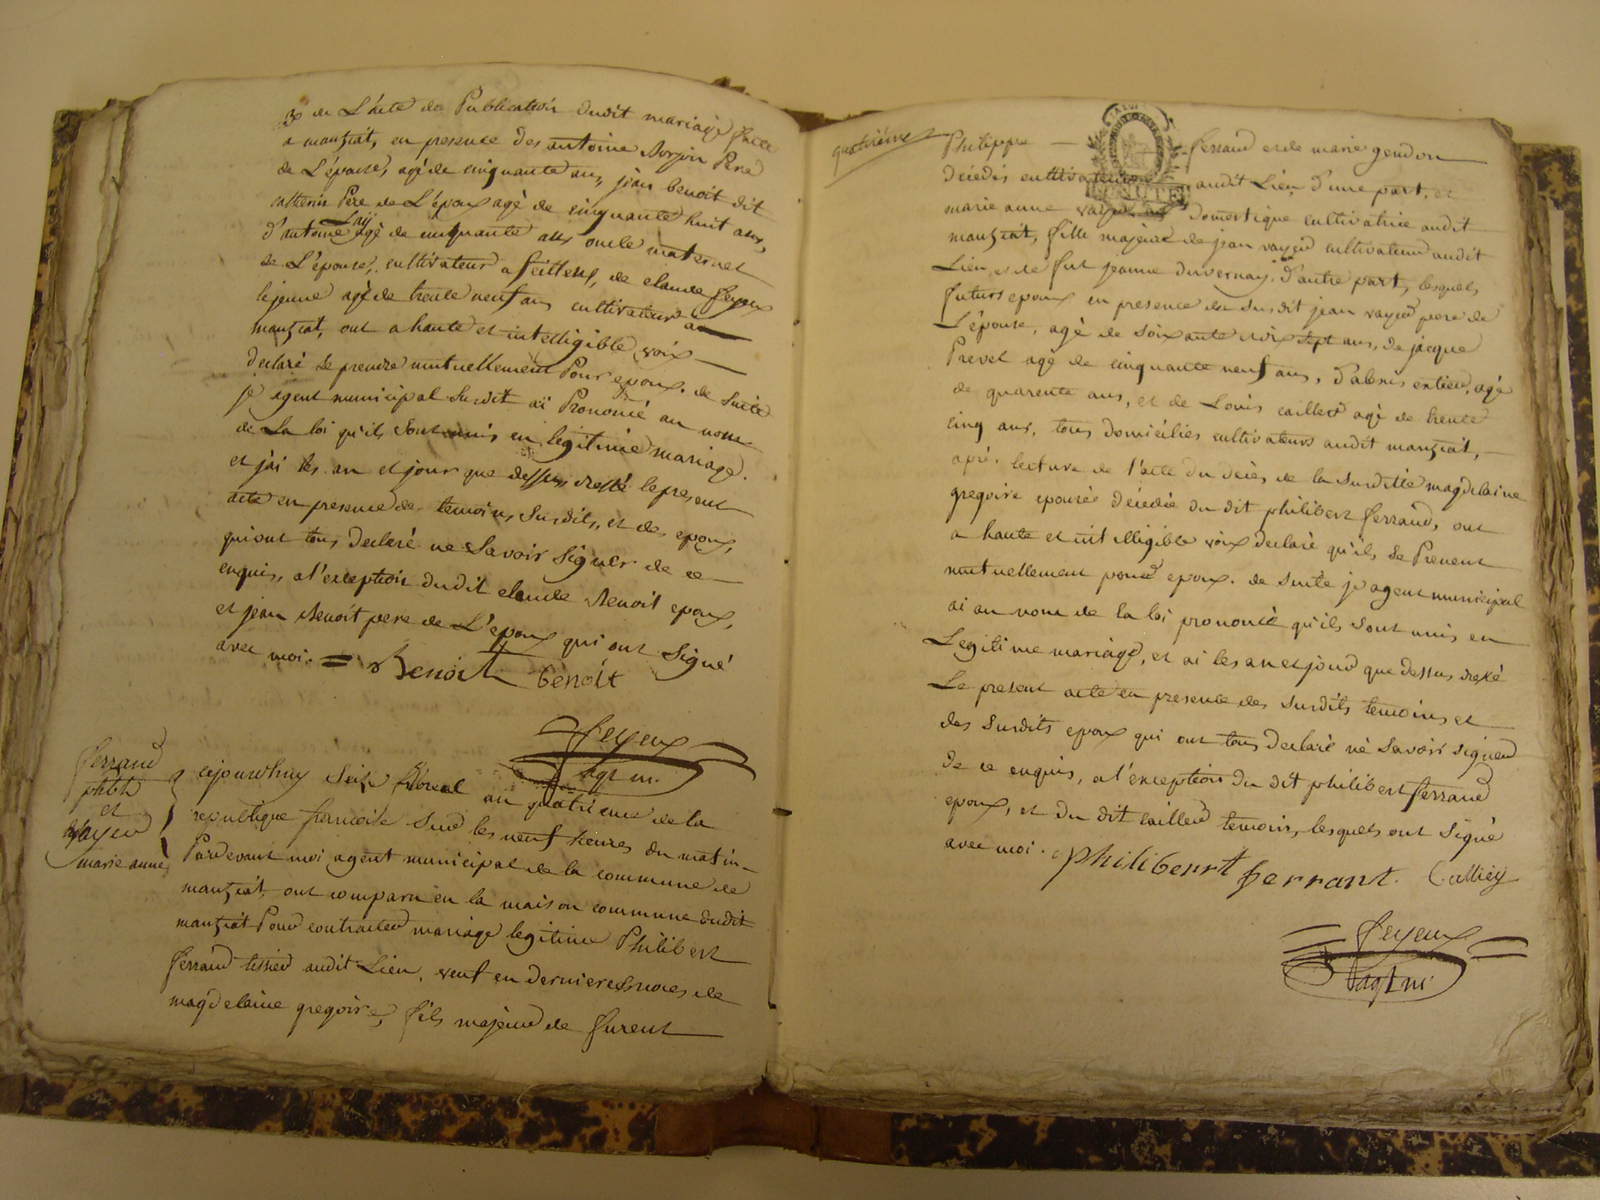 3º de L'acte de Publication dudit mariage faite
a manziat, en presence des antoine Morgon Pere
de L'épouse, agé de cinquante ans, jean benoit dit
Pere de L'époux agé de cinquante huit ans,
d'antoine Laÿ agé de cinquante ans oncle maternel
de L'épouse, cultivateur a feillens, de claude feyeux
lejeune agé de trente neuf ans cultivateur a
manziat, ont a haute et intelligible voix
declaré se prendre mutuellement Pour epoux. de suite
je agent municipal Susdit ai Prononcé au nom
de La loi qu'ils sont unis en legitime mariage.
et j'ai les an et jour que dessus dressé le present
acte en presence des temoins Susdits, et des epoux,
qui ont tous declaré ne Savoir Signer de ce
enquis, a l'exception dudit claude Benoit epoux,
et jean Benoit pere de L'epoux qui ont Signé
avec moi. = Benoit benoit
feyeux
agt m.
ferrand
phtbt
et
Vayeur
marie anne
cejourd'huy Seize floreal an quatrieme de la
republique francoise Sur les neuf heures du matin
Pardevant moi agent municipal de la commune de
manziat, ont comparu en la maison commune dudit
manziat Pour contracter mariage legitime Philibert
ferrand tissier audit Lieu, veuf en dernieres noces de
magdelaine gregoire, fils majeur de furent
quatrieme
Philippe ferrand et de marie gendon
décédés cultivateurs audit Lieu d'une part, et
marie anne vayeur domestique cultivatrice audit
manziat, fille majeure de jean vayeur cultivateur audit
Lieu, et de fut jeanne duvernay, d'autre part, lesquels
futurs epoux en presence du Susdit jean vayeur pere de
L'épouse, agé de Soixante dix sept ans, de jacque
Prevel agé de cinquante neuf ans, d'abnis agé
de quarante ans, et de Louis cailler agé de trente
cinq ans, tous domiciliés cultivateurs audit manziat,
aprés lecture de l'acte du decès de la Surditte magdelaine
gregoire epouse décédée du dit philibert ferrand, ont
a haute et intelligible voix declaré qu'ils Se Prenent
mutuellement pour epoux. de Suite je agent municipal
ai au nom de la loi prononcé qu'ils sont unis en
Legitime mariage, et ai les an et jour que dessus dressé
Le present acte en presence des Surdits temoins et
des Surdits epoux qui ont tous declaré ne Savoir signer
de ce enquis, a l'exception du dit philibert ferrand
epoux, et du dit cailler temoin, lesquels ont Signé
avec moi. philibenrt ferrant. Calliey
feyeux
agt m.